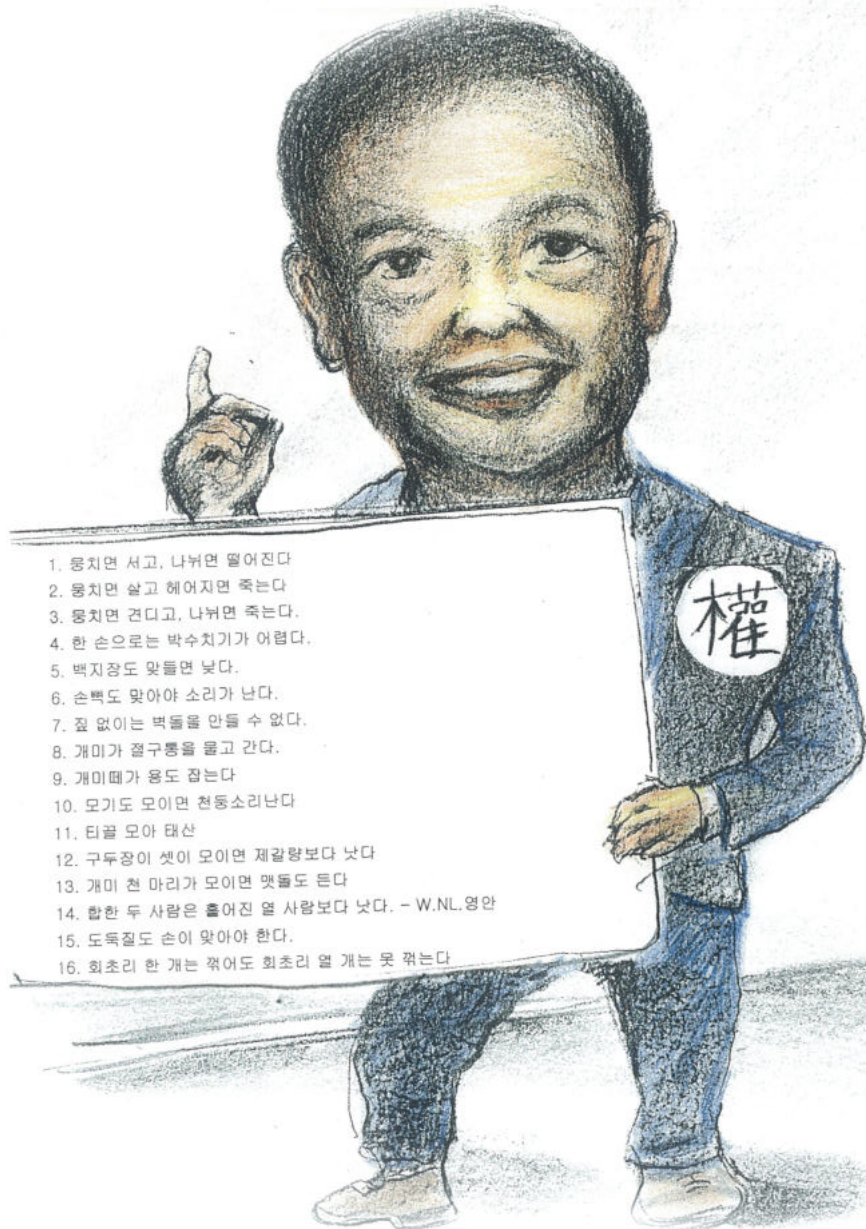 1. 뭉치면 서고, 나뉘면 떨어진다
2. 뭉치면 살고 헤어지면 죽는다
3. 뭉치면 견디고, 나뉘면 죽는다.
4. 한 손으로는 박수치기가 어렵다.
5. 백지장도 맞들면 낮다.
6. 손뼉도 맞아야 소리가 난다.
7. 짚 없이는 벽돌을 만들 수 없다.
8. 개미가 절구통을 물고 간다.
9. 개미떼가 용도 잡는다
10. 모기도 모이면 천둥소리난다
11. 티끌 모아 태산
12. 구두장이 셋이 모이면 제갈량보다 낫다
13. 개미 천 마리가 모이면 맷돌도 든다
14. 합한 두 사람은 흩어진 열 사람보다 낫다. - W.NL.영안
15. 도둑질도 손이 맞아야 한다.
16. 회초리 한 개는 꺾어도 회초리 열 개는 못 꺾는다
權